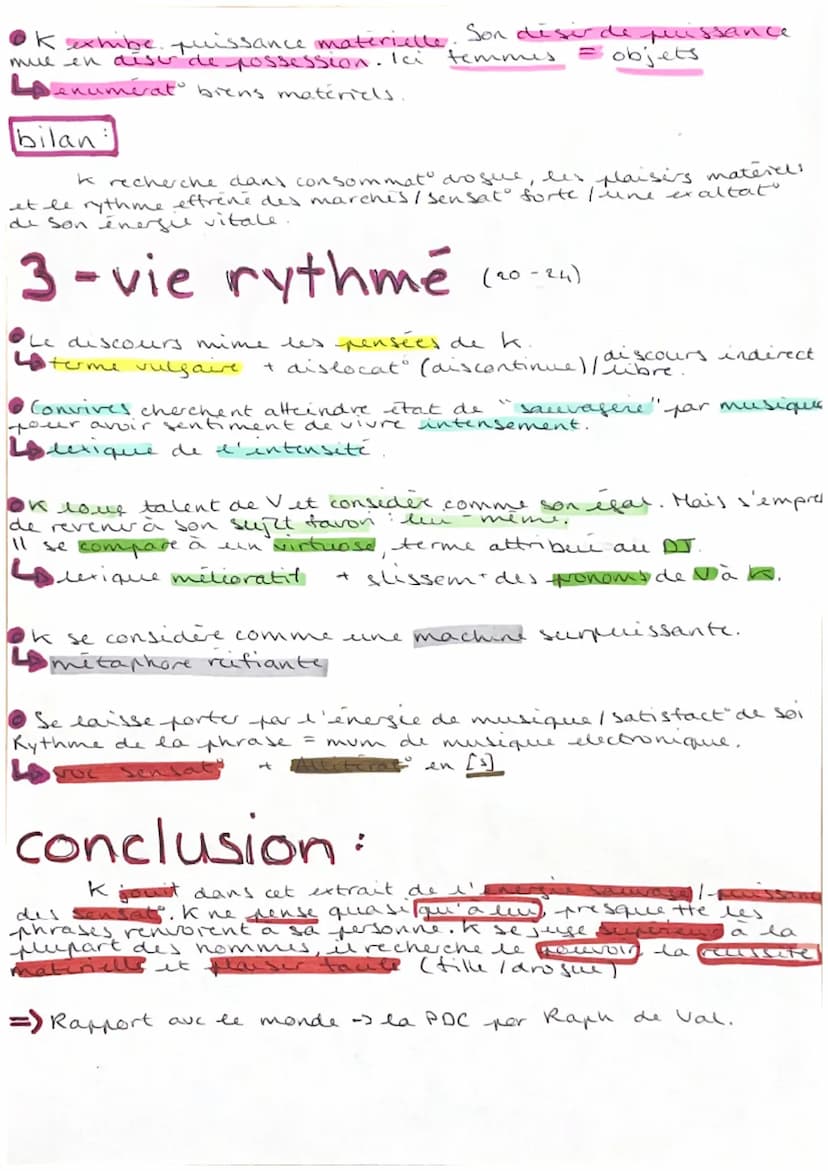 • K exhibe puissance matérielle. Son désir de puissance
mue en désir de possession. Ici femmes = objets
↳ énumérat° biens matériels.
bilan :
K recherche dans consommat° drogue, les plaisirs matériels
et le rythme effréné des marchés / sensat° forte / une exaltat°
de son énergie vitale.
3 - vie rythmé (20 - 24)
• Le discours mime les pensées de K.
↳ terme vulgaire + dislocat° (discontinue) / discours indirect libre.
• Convives cherchent atteindre état de "sauvagerie" par musique
pour avoir sentiment de vivre intensement.
↳ lexique de l'intensité.
• K loue talent de V et considère comme son égal. Mais s'empre
de revenir à son sujet favori : lui-même.
Il se compare à un virtuose, terme attribué au DJ.
↳ lexique mélioratif + glissemt des pronoms de V à K.
• K se considère comme une machine surpuissante.
↳ métaphore réifiante
• Se laisse porter par l'énergie de musique / satisfact° de soi
Rythme de la phrase = mvm de musique électronique.
↳ voc sensat° + Allitérat° en [s]
conclusion :
K jouit dans cet extrait de l'énergie sauvage / puissanc
des sensat°. K ne pense quasi qu'à lui, presque tte les
phrases renvoient à sa personne. K se juge supérieur à la
plupart des hommes, il recherche le pouvoir, la réussite
matérielle et plaisir facile (fille / drogue)
=> Rapport avc le monde -> la PDC par Raph de Val.